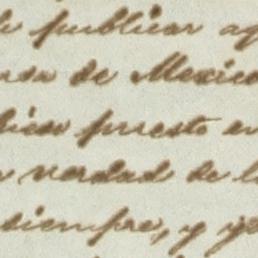 publicar
de Mexico
puesto en
verdad de
siempre, y